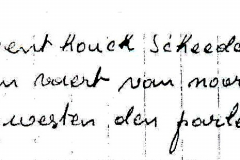 vent Houck Scheede
n vaert van noor
westen den parle